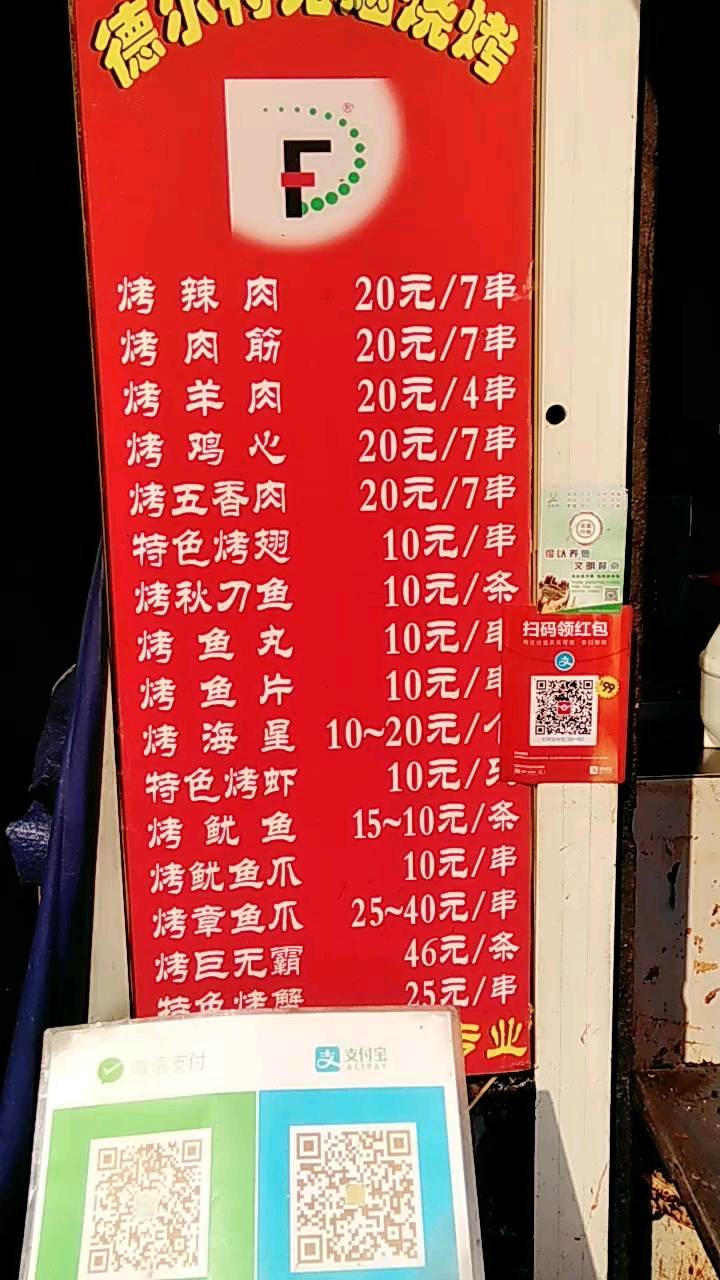 德尔特无烟烧烤
烤辣肉 20元/7串
烤肉筋 20元/7串
烤羊肉 20元/4串
烤鸡心 20元/7串
烤五香肉 20元/7串
特色烤翅 10元/串
烤秋刀鱼 10元/条
烤鱼丸 10元/串
烤鱼片 10元/串
烤海星 10~20元/个
特色烤虾 10元/
烤鱿鱼 15~10元/条
烤鱿鱼爪 10元/串
烤章鱼爪 25~40元/串
烤巨无霸 46元/条
特色烤蟹 25元/串
专业
扫码领红包
99
文明餐桌
微信支付
支付宝
ALIPAY